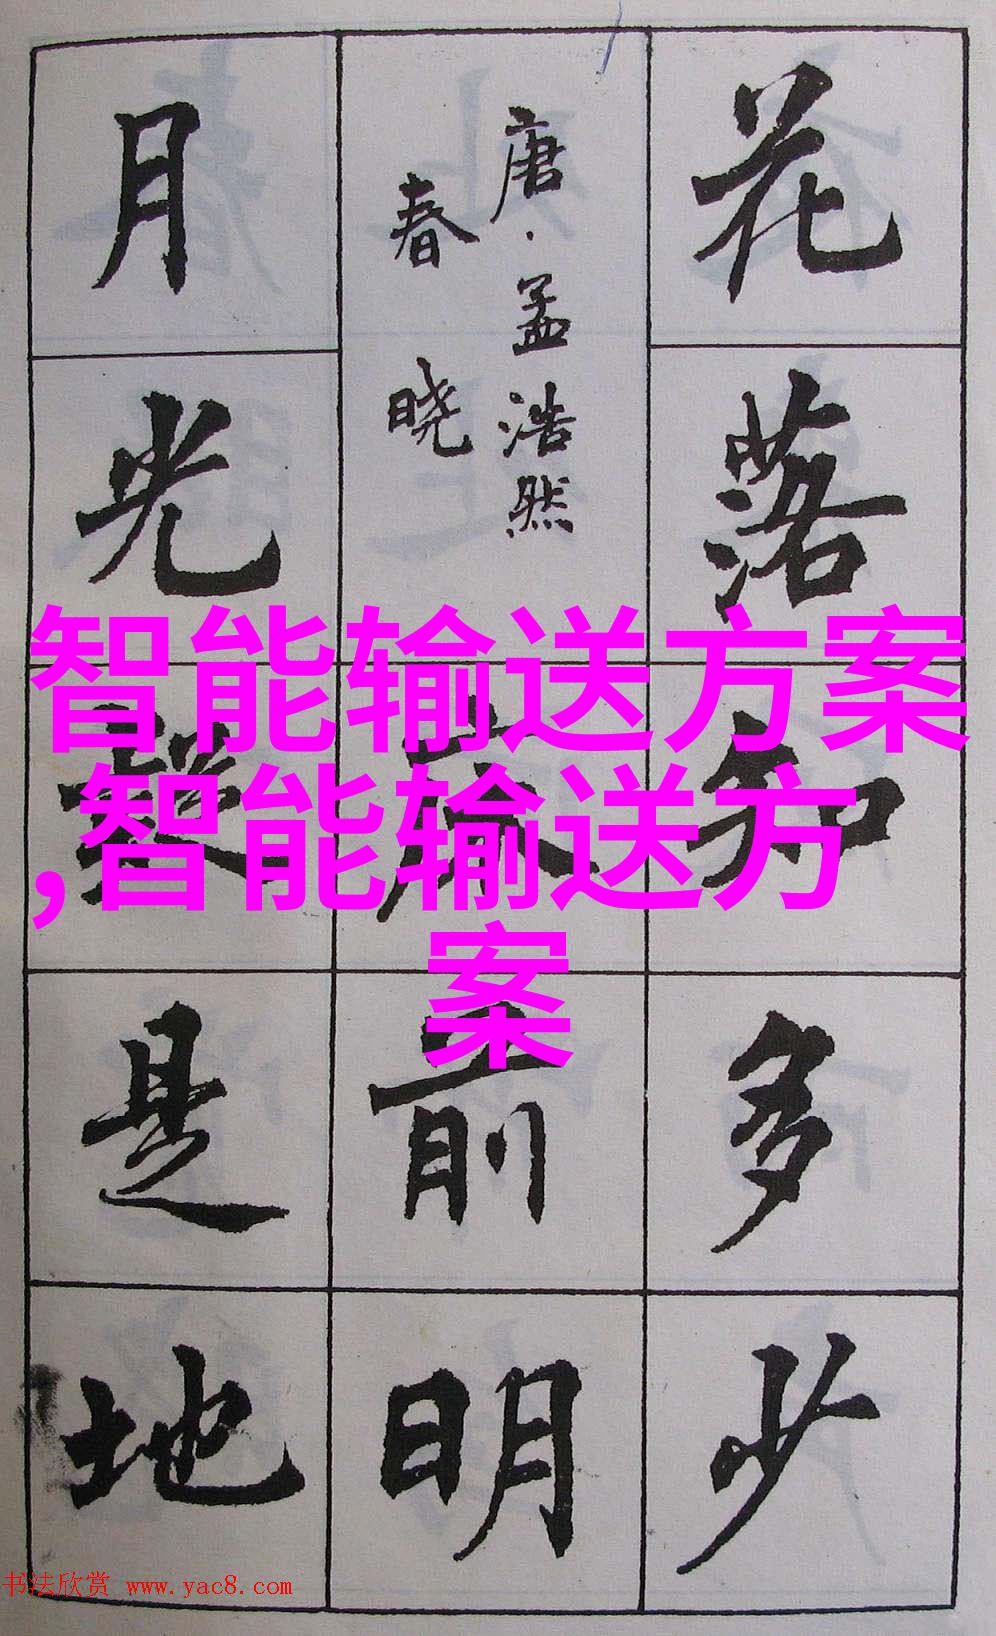 花落知多少
唐·孟浩然
春晓
床前明
月光疑是地
智能输送方案
,智能输送方
案
书法欣赏 www.yac8.com